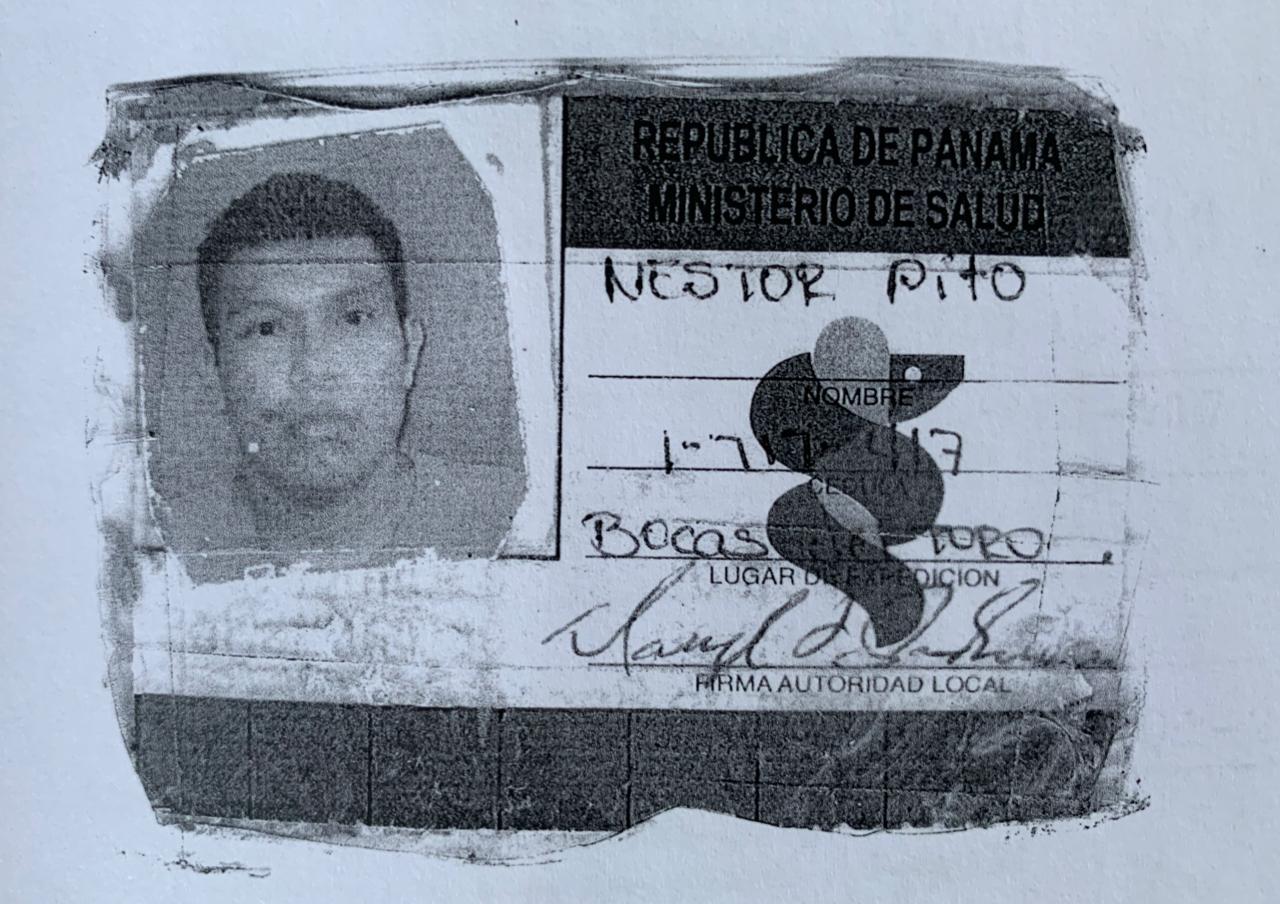 REPUBLICA DE PANAMA
MINISTERIO DE SALUD
NESTOR Pito
NOMBRE
1-717-417
CEDULA
BOCAS TORO
LUGAR DE EXPEDICION
FIRMA AUTORIDAD LOCAL